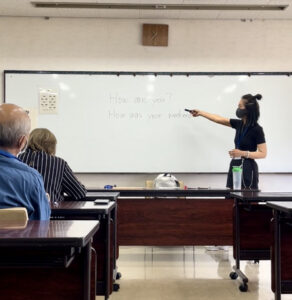 How are you?
How was your weekend